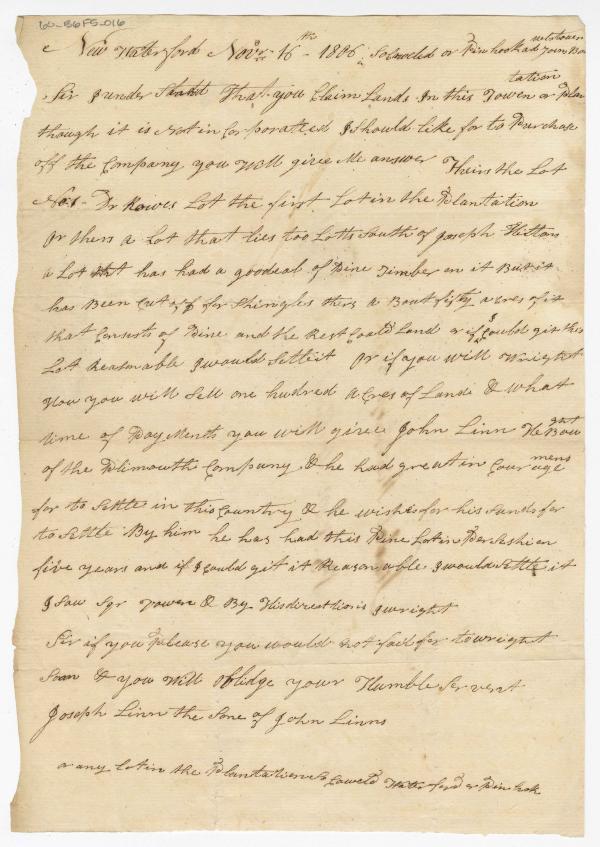 60-B6F5-016
New Waterford Novr 16th 1806 Socaweled or Pinhook ad
Sir I under Statd That you Claim Lands In this Towen or Plan tation
though it is Not in Corporatted I Should Like for to Purchase
off the Company you Will givee Me answer Theirs the Lot
No 1 - Dr Rowes Lot the first Lot in the Plantation
Or thers a Lot that lies too Lotts South of Joseph Hiltons
a Lot that has had a goodeal of Pine Timber on it But it
has Been Cut off for Shingles thers a Bout fifty acres of it
that Consists of Pine and the Rest Coald Land & if I Could git this
Lot Reasonable I would Settleit Or if you will Wright
How you will Sell one hudred acres of Land & What
time of Payments you will givee John Linn He Bou ght
of the Plimouth Company & he had great in Couragemens
for to Settle in this Country & he wishes for his Suns for
to Settle By him he has had this Pine Lot in Perseshien
five years and if I Could git it Reasonable I would Settle it
I Saw Sqr Towen & By His direction is I wright
Sir if you Please you would not fail for to wright
Soon & you Will oblidge your Humble Servent
Joseph Linn the Sone of John Linns
or any Lot in the Plantatione Caweld Waterford or Pinhok